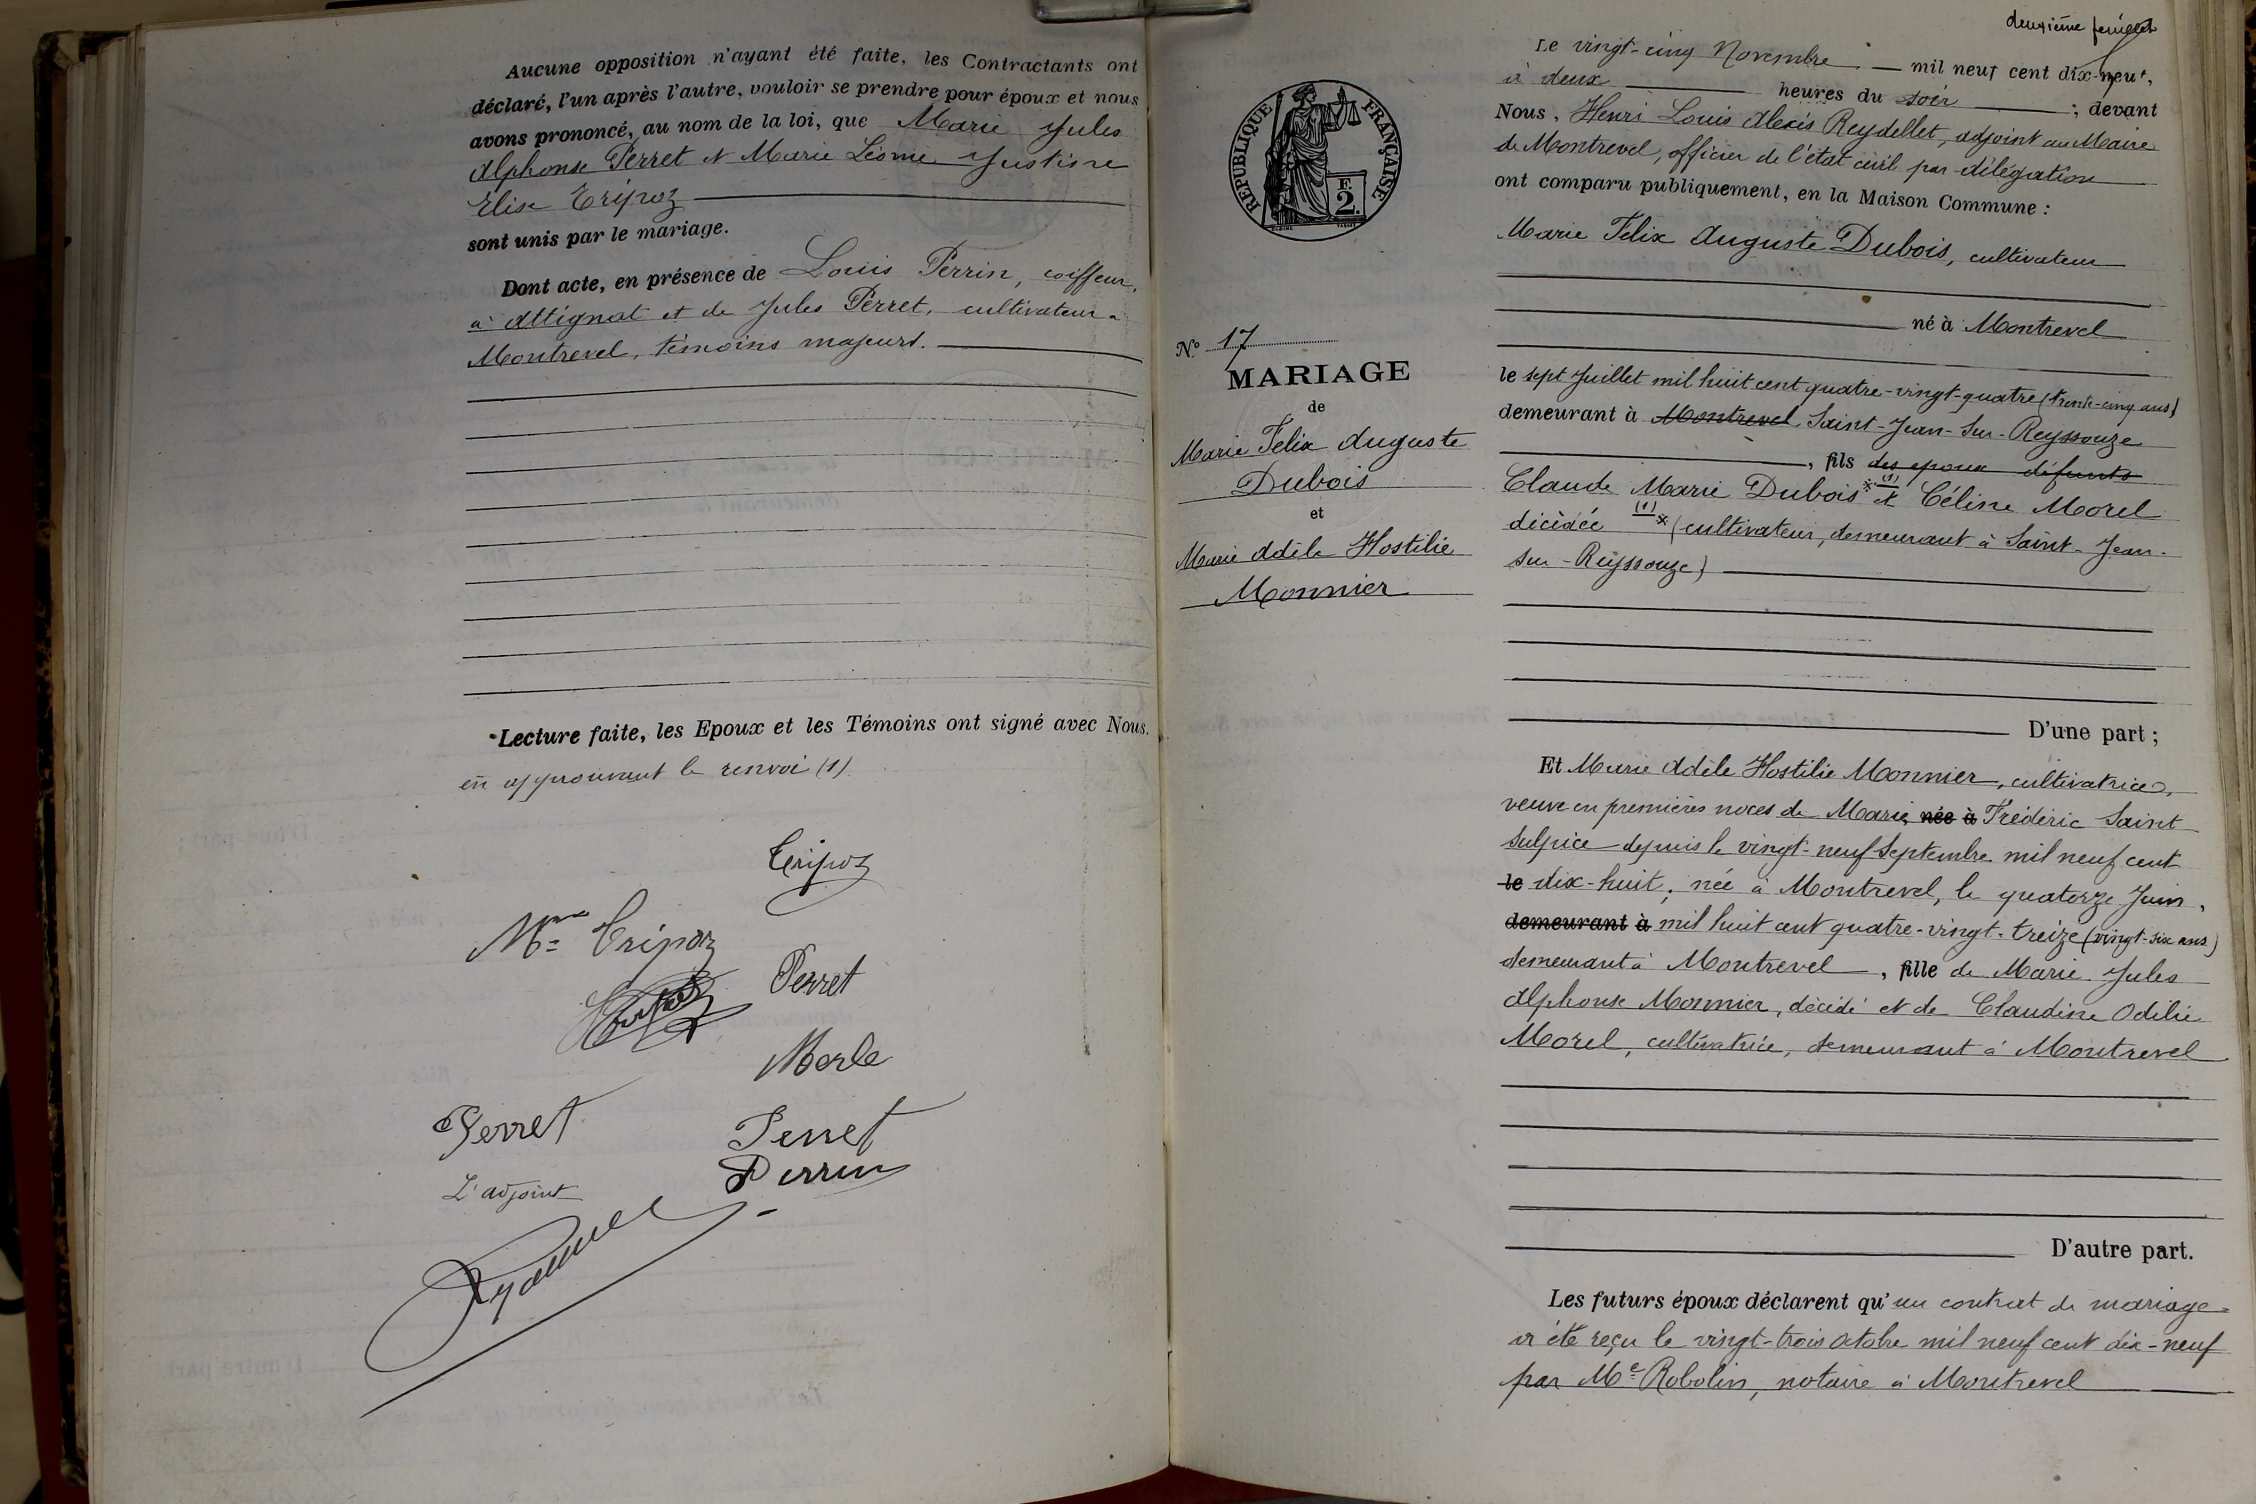 Aucune opposition n'ayant été faite, les Contractants ont
déclaré, l'un après l'autre, vouloir se prendre pour époux et nous
avons prononcé, au nom de la loi, que Marie Jules
Alphonse Perret et Marie Léonie Justine
Elise Tripoz
sont unis par le mariage.
Dont acte, en présence de Louis Perrin, coiffeur,
à Attignat et de Jules Perret, cultivateur à
Montrevel, témoins majeurs.
Lecture faite, les Epoux et les Témoins ont signé avec Nous.
en approuvant le renvoi (1)
Tripoz
Tripoz
Perret
Merle
Perret
Perret
Perrin
L'adjoint
deuxième feuillet
RÉPUBLIQUE FRANÇAISE
2 F.
N° 17
MARIAGE
de
Marie Felix Auguste
Dubois
et
Marie Adèle Hostilie
Monnier
Le vingt-cinq Novembre mil neuf cent dix-neuf,
à deux heures du soir ; devant
Nous, Henri Louis Alexis Reydellet, adjoint au Maire
de Montrevel, officier de l'état civil par délégation
ont comparu publiquement, en la Maison Commune :
Marie Felix Auguste Dubois, cultivateur
né à Montrevel
le sept Juillet mil huit cent quatre-vingt-quatre (trente-cinq ans)
demeurant à Montrevel Saint-Jean-Sur-Reyssouze
, fils des époux défunts
Claude Marie Dubois * (1) et Céline Morel
décédée (1) * (cultivateur, demeurant à Saint-Jean-
sur-Reyssouze)
D'une part ;
Et Marie Adèle Hostilie Monnier, cultivatrice,
veuve en premières noces de Marie née à Frédéric Saint
Sulpice depuis le vingt-neuf Septembre mil neuf cent
le dix-huit, née à Montrevel, le quatorze Juin,
demeurant à mil huit cent quatre-vingt-treize (vingt-six ans)
demeurant à Montrevel, fille de Marie Jules
Alphonse Monnier, décédé et de Claudine Odilie
Morel, cultivatrice, demeurant à Montrevel
D'autre part.
Les futurs époux déclarent qu'un contrat de mariage
a été reçu le vingt-trois Octobre mil neuf cent dix-neuf
par Me Robolin, notaire à Montrevel